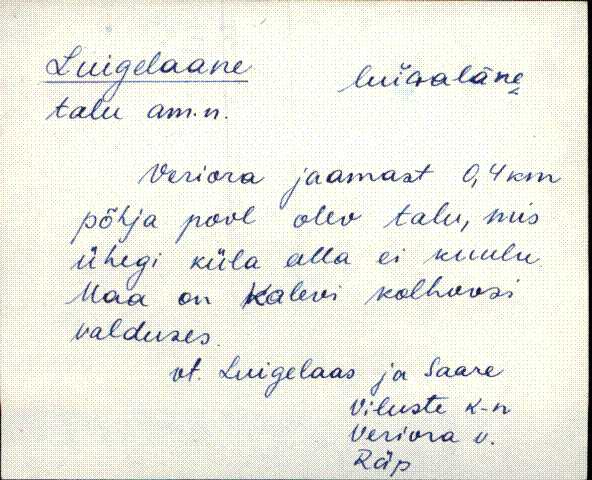 Luigelaane luiɢalāne̬
talu am.n.
Veriora jaamast 0,4 km
põhja pool olev talu, mis
ühegi küla alla ei kuulu.
Maa on Kalevi kolhoosi
valduses.
vt. Luigelaas ja Saare
Viluste k-n
Veriora v.
Räp